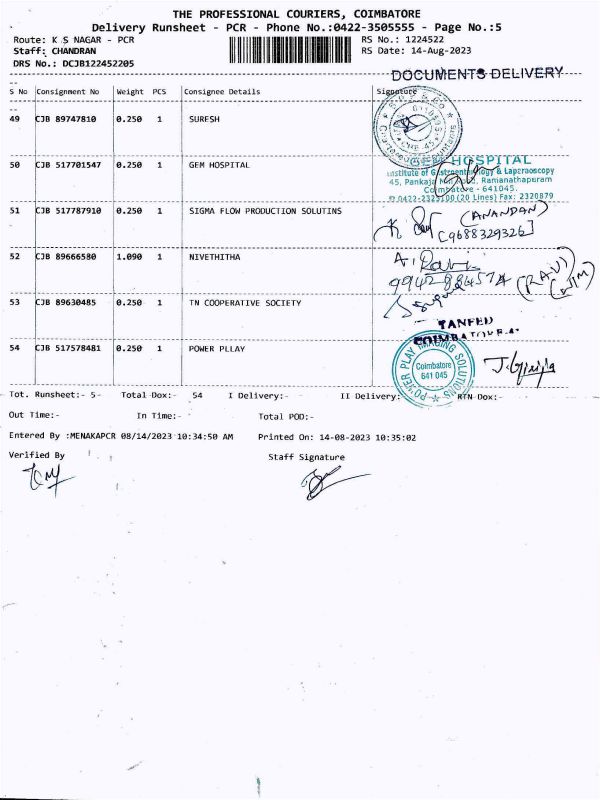 THE PROFESSIONAL COURIERS, COIMBATORE
Delivery Runsheet - PCR - Phone No.:0422-3505555 - Page No.:5
Route: K S NAGAR - PCR
RS No.: 1224522
Staff: CHANDRAN
RS Date: 14-Aug-2023
DRS No.: DCJB122452205
DOCUMENTS DELIVERY
S No Consignment No Weight PCS Consignee Details Signature
49 CJB 89747810 0.250 1 SURESH
50 CJB 517701547 0.250 1 GEM HOSPITAL
GEM HOSPITAL
Institute of Gastroenterology & Laparaoscopy
45, Pankaja Mill Road, Ramanathapuram
Coimbatore - 641045.
0422-2325100 (20 Lines) Fax: 2320879
51 CJB 517787910 0.250 1 SIGMA FLOW PRODUCTION SOLUTINS
(ANANDAN)
[9688329326]
52 CJB 89666580 1.090 1 NIVETHITHA
A. Ravi
(RAVI)
53 CJB 89630485 0.250 1 TN COOPERATIVE SOCIETY
TANFED
COIMBATORE
54 CJB 517578481 0.250 1 POWER PLLAY
POWER PLAY IMAGING SOLUTIONS
Coimbatore
641 045
Tot. Runsheet:- 5- Total Dox:- 54 I Delivery:- II Delivery:- RTN Dox:-
Out Time:- In Time:- Total POD:-
Entered By :MENAKAPCR 08/14/2023 10:34:50 AM Printed On: 14-08-2023 10:35:02
Verified By Staff Signature